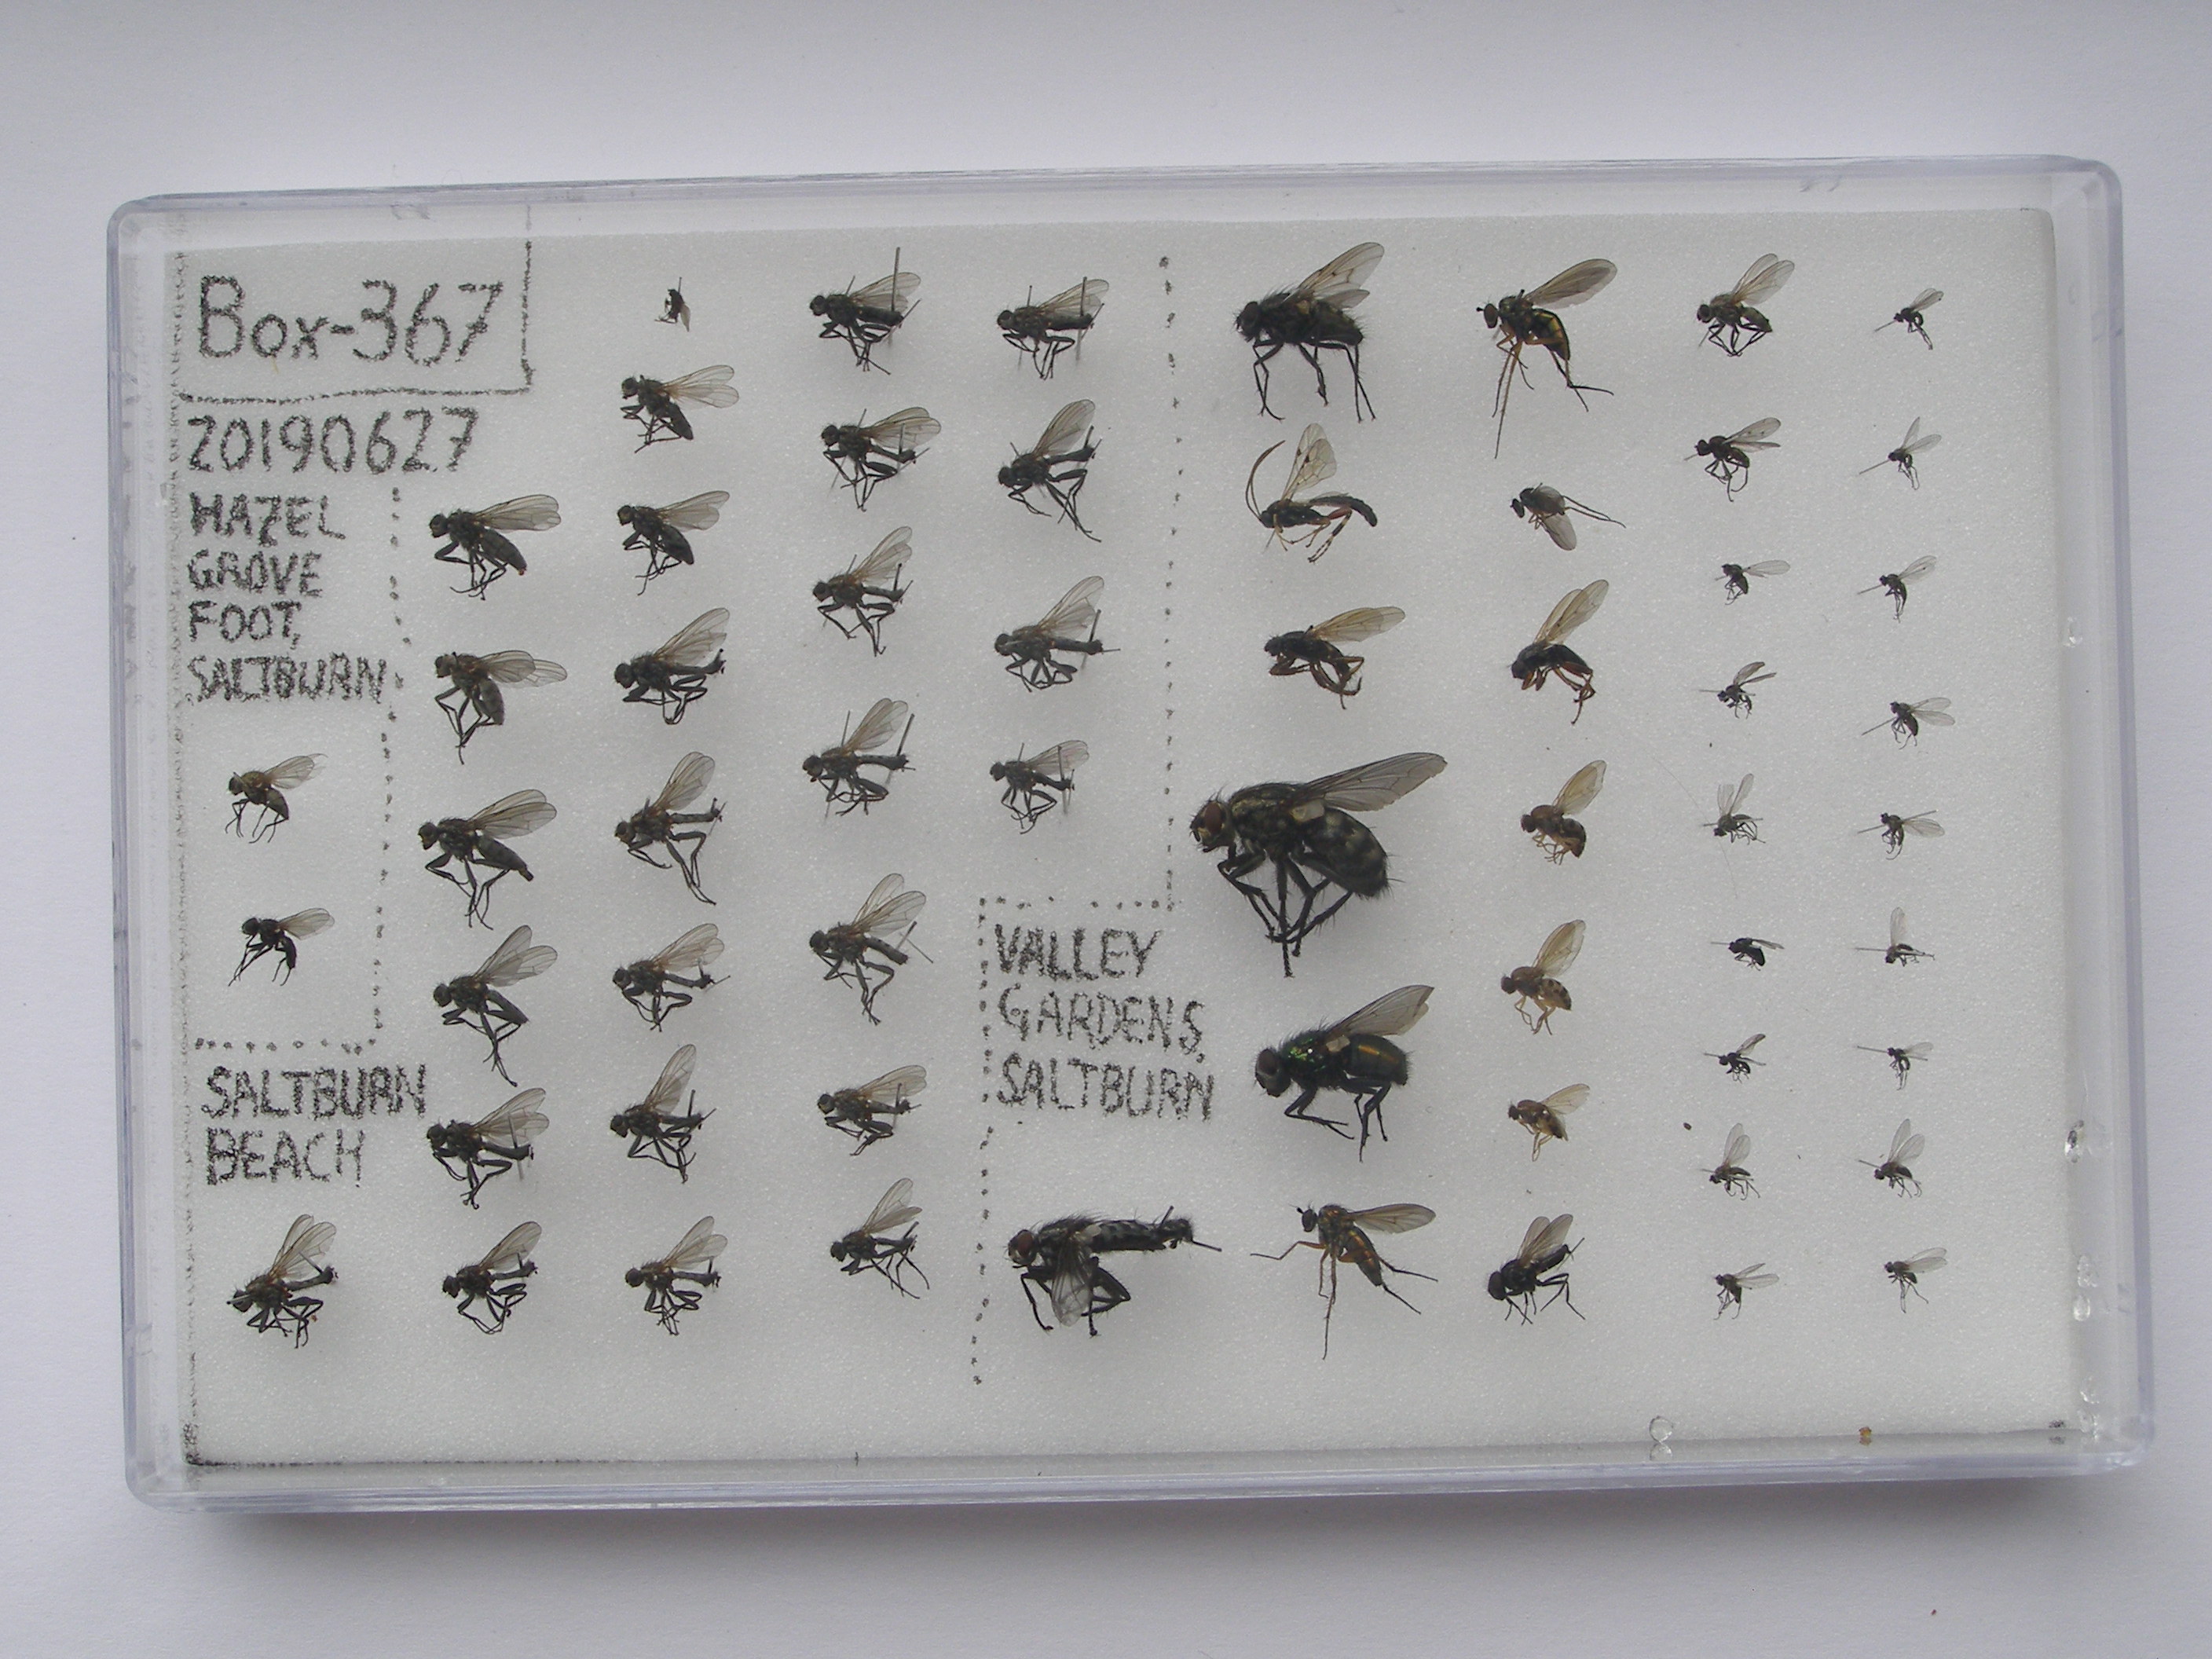 Box-367
20190627
HAZEL
GROVE
FOOT,
SALTBURN
SALTBURN
BEACH
VALLEY
GARDENS,
SALTBURN